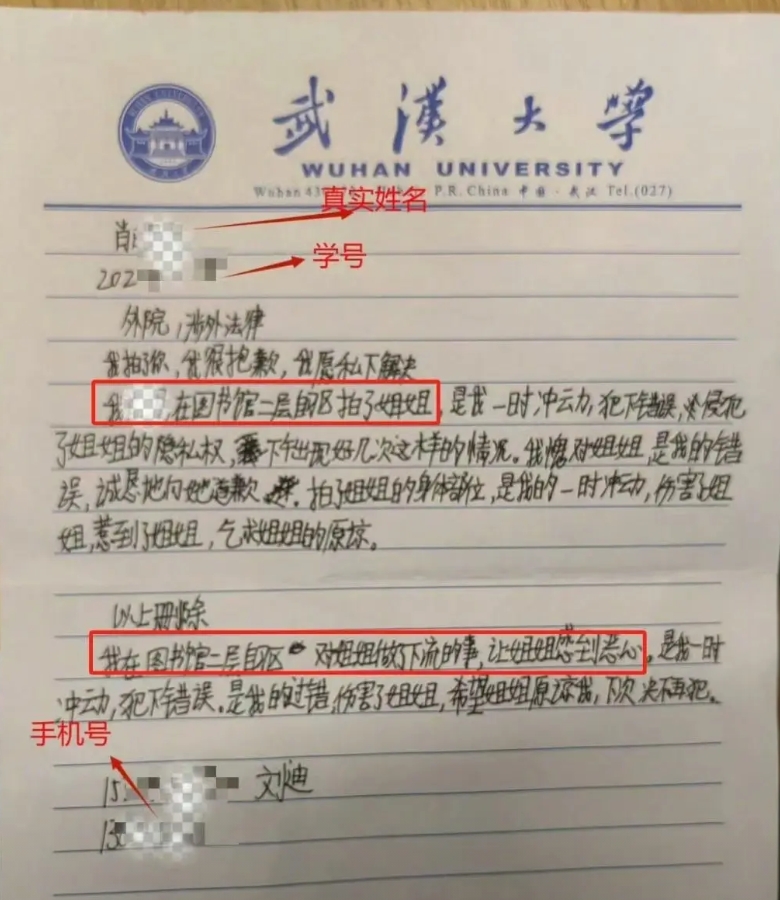 武漢大學
WUHAN UNIVERSITY
Wuhan 43 P.R. China 中国·武汉 Tel.(027)
真实姓名
肖
学号
202
外院,涉外法律
我拍了你,我很抱歉,我愿私下解决
我 ,在图书馆二层自习区拍了姐姐,是我一时冲动,犯下错误,侵犯
了姐姐的隐私权,下午出现好几次这样的情况。我愧对姐姐,是我的错
误,诚恳地向她道歉。拍了姐姐的身体部位,是我的一时冲动,伤害了姐
姐,惹到了姐姐,乞求姐姐的原谅。
以上删除
我在图书馆二层自习区 对姐姐做了下流的事,让姐姐感到恶心。是我一时
冲动,犯下错误。是我的过错,伤害了姐姐,希望姐姐原谅我,下次决不再犯。
手机号
15
13